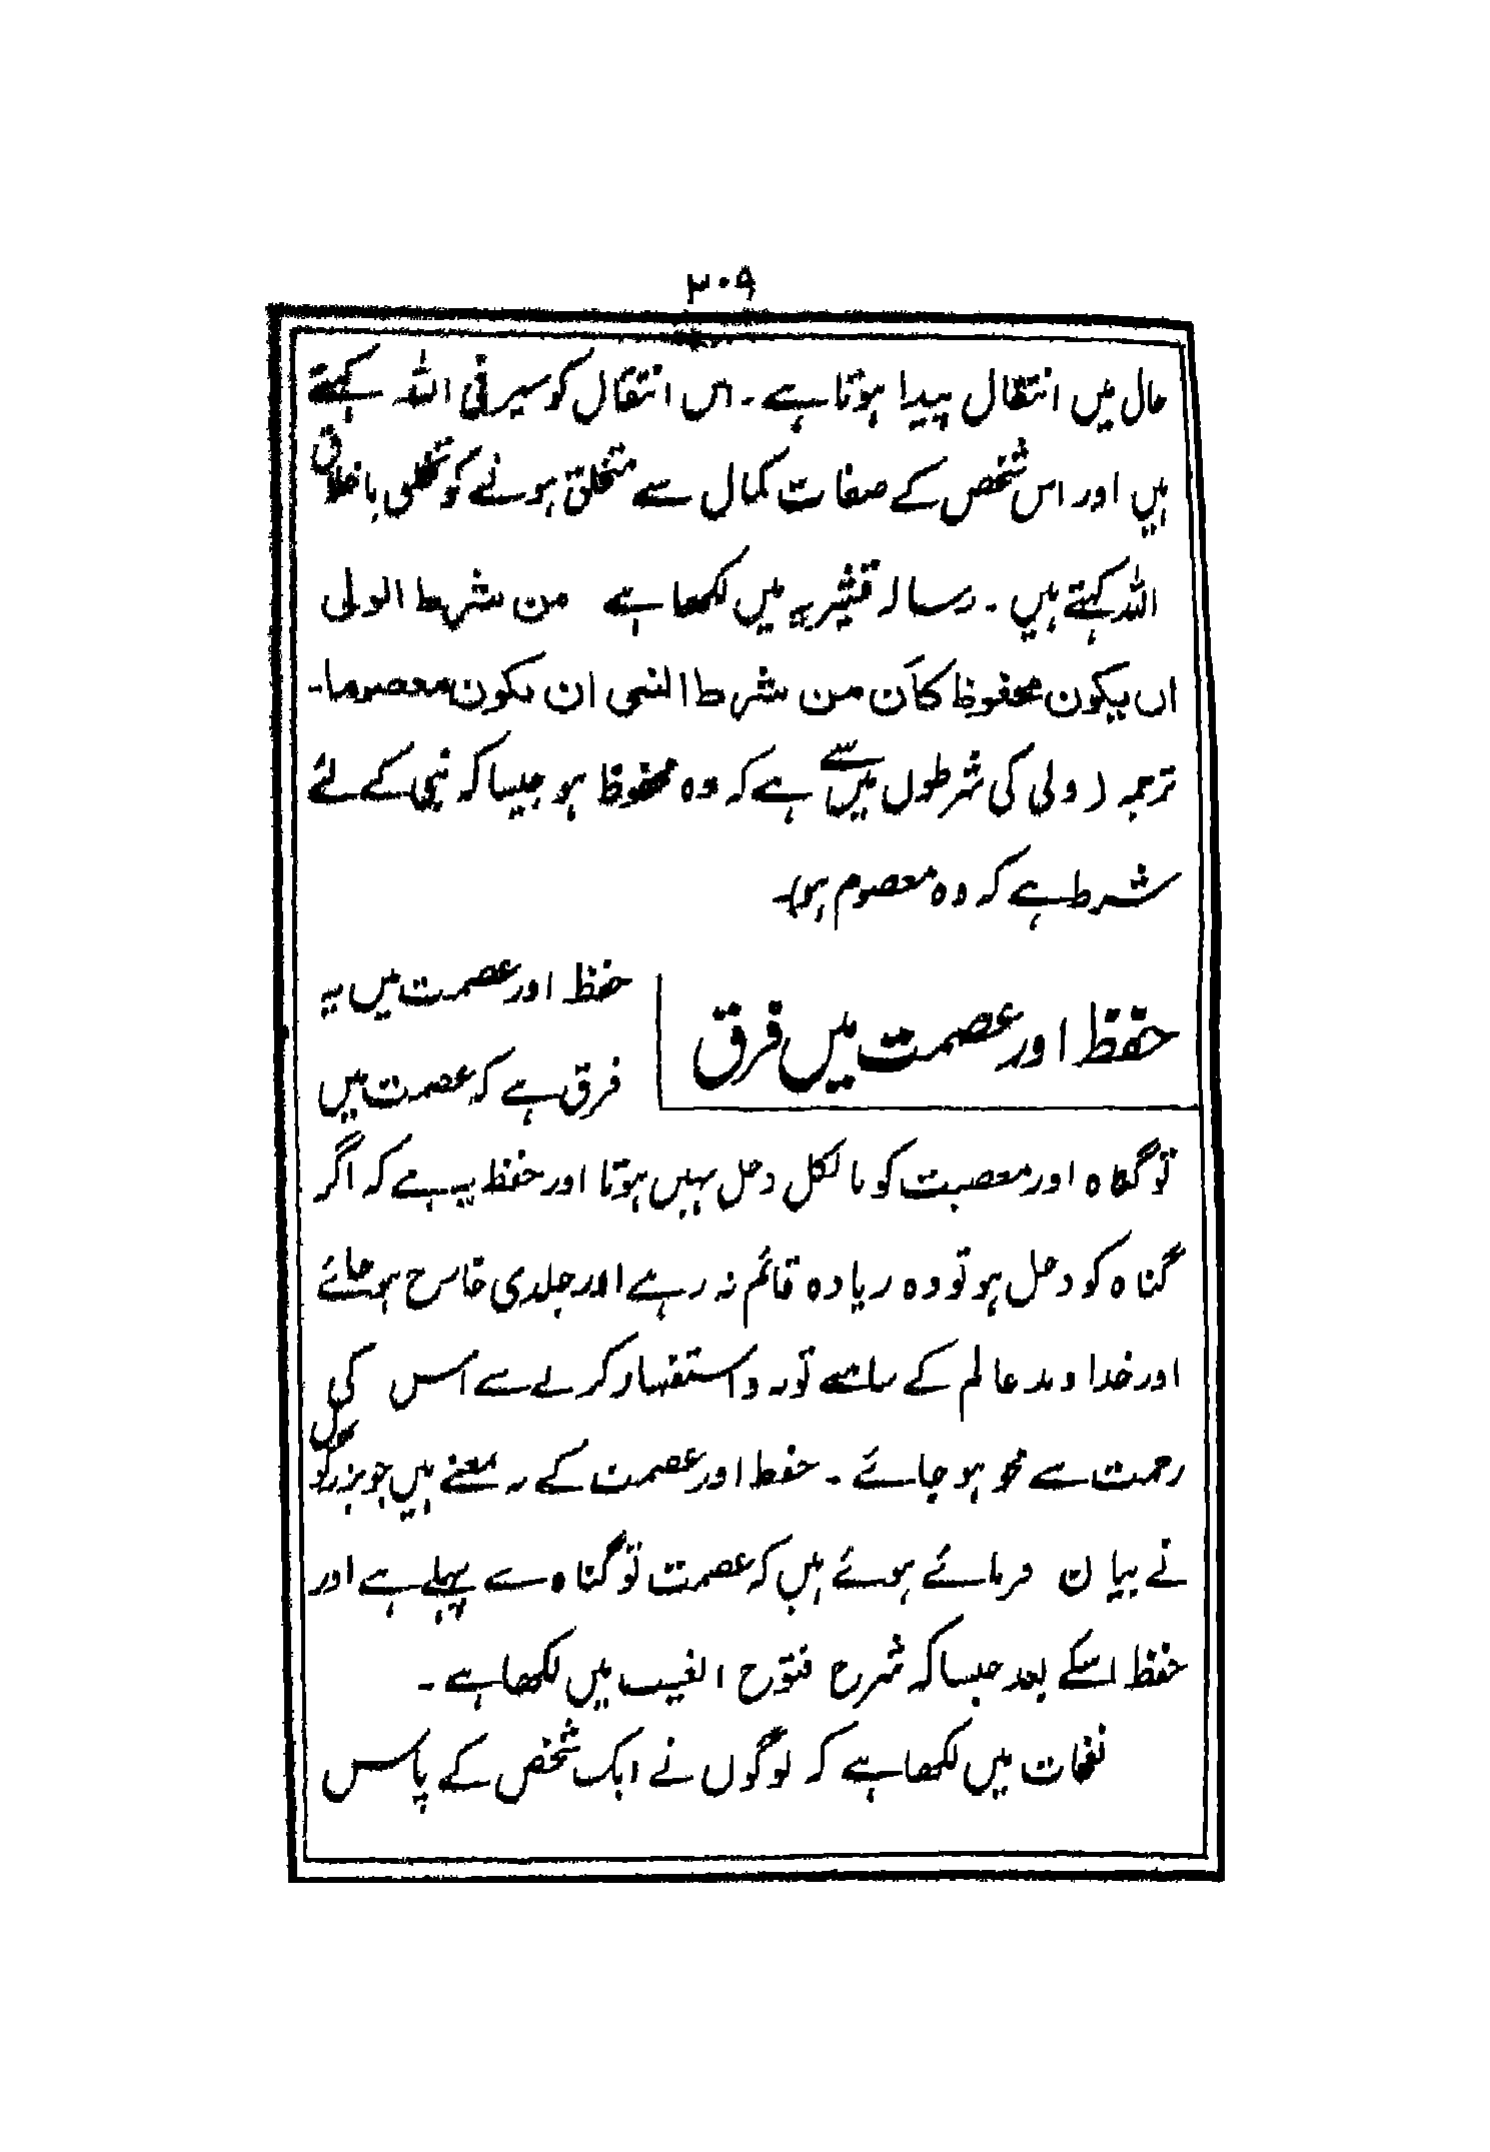 ۳۰۹
حال میں انتقال پیدا ہوتا ہے۔ اس انتقال کو سیر فی اللہ کہتے
ہیں اور اس شخص کے صفات کمال سے متخلق ہونے کو تخلق باخلاق
اللہ کہتے ہیں۔ رسالہ قشیریہ میں لکھا ہے من شرط الولی
ان یکون محفوظا کان من شرط النبی ان یکون معصوما۔
ترجمہ (ولی کی شرطوں میں سے ہے کہ وہ محفوظ ہو جیسا کہ نبی کے لئے
شرط ہے کہ وہ معصوم ہو)۔
حفظ اور عصمت میں فرق
حفظ اور عصمت میں یہ
فرق ہے کہ عصمت میں
تو گناہ اور معصیت کو بالکل دخل نہیں ہوتا اور حفظ یہ ہے کہ اگر
گناہ کو دخل ہو تو وہ زیادہ قائم نہ رہے اور جلدی خارج ہو جائے
اور خداوند عالم کے سامنے توبہ و استغفار کرنے سے اس کی
رحمت سے محو ہو جائے۔ حفظ اور عصمت کے یہ معنے ہیں جو بزرگوں
نے بیان فرمائے ہوئے ہیں کہ عصمت تو گناہ سے پہلے ہے اور
حفظ اسکے بعد جیسا کہ شرح فتوح الغیب میں لکھا ہے۔
نفحات میں لکھا ہے کہ لوگوں نے ایک شخص کے پاس